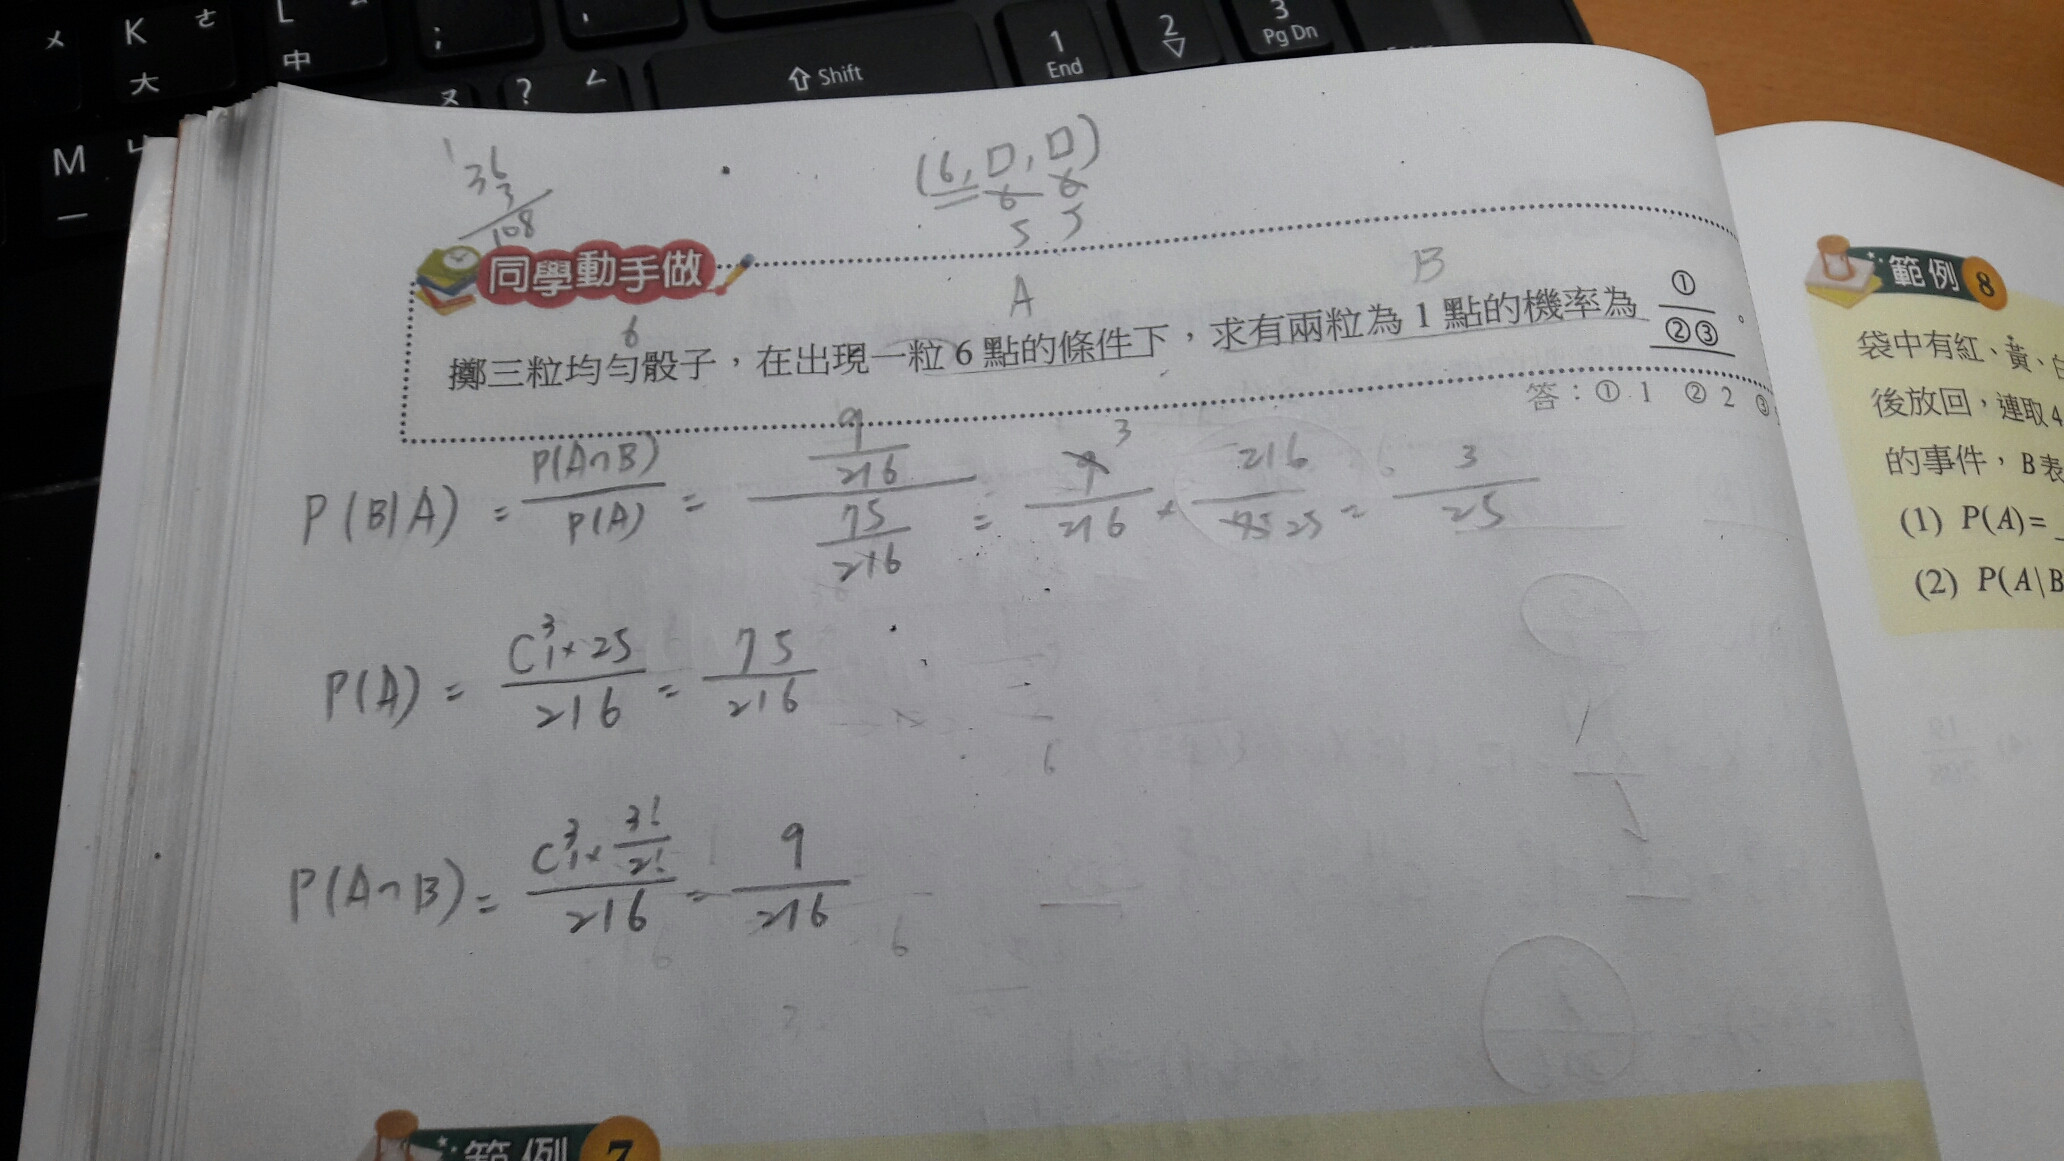 K ㄜ
大
L
中
;
?
ㄥ
ㄡ
⇧ Shift
1
End
2
▽
3
Pg Dn
M
一
36
3
108
(6, □, □)
6 6
5 5
同學動手做
A
B
6
擲三粒均勻骰子，在出現一粒 6 點的條件下，求有兩粒為 1 點的機率為 ①/②③ 。
答：① 1 ② 2 ③
P(B|A) = P(A∩B)/P(A) = (9/216)/(75/216) = 9/216 × 216/75 = 3/25
3
25
P(A) = C³₁×25/216 = 75/216
P(A∩B) = C³₁×3!/2!/216 = 9/216
範例 7
範例 8
袋中有紅、黃、白
後放回，連取 4
的事件，B 表
(1) P(A)=
(2) P(A|B